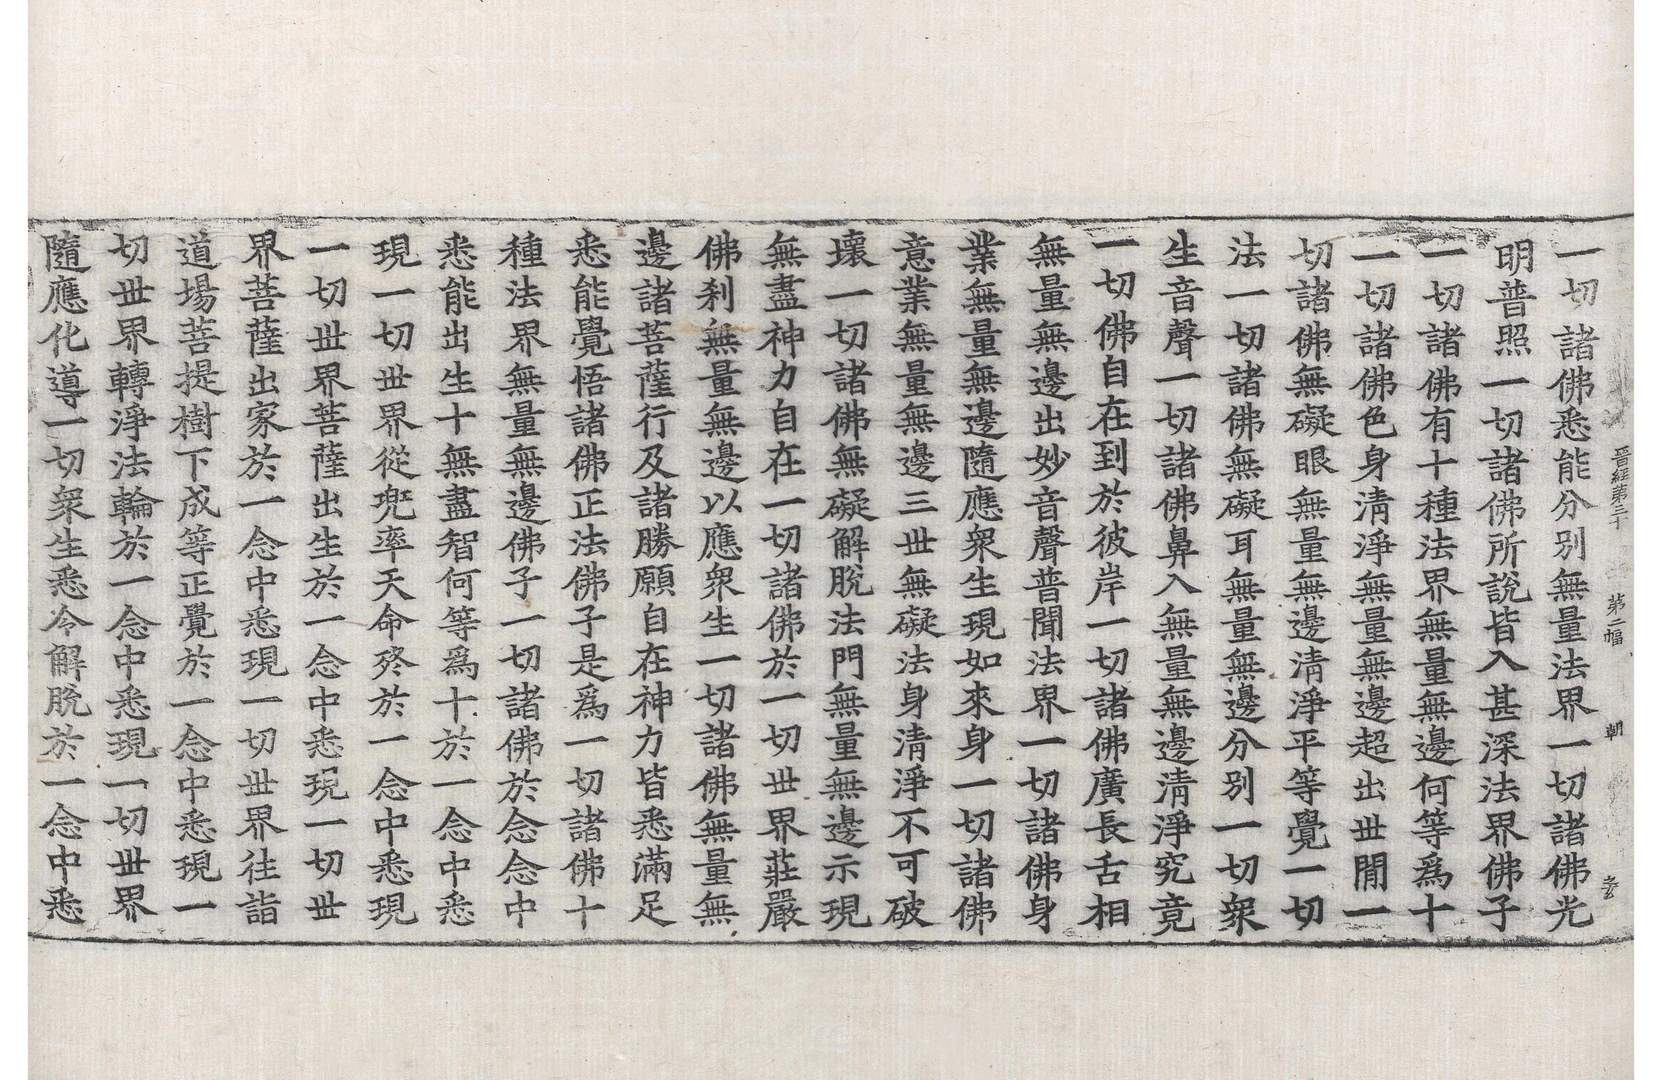 晉經第三十　第二幅　朝　玄
一切諸佛悉能分別無量法界一切諸佛光
明普照一切諸佛所說皆入甚深法界佛子
一切諸佛有十種法界無量無邊何等為十
一切諸佛色身清淨無量無邊超出世間一
切諸佛無礙眼無量無邊清淨平等覺一切
法一切諸佛無礙耳無量無邊分別一切衆
生音聲一切諸佛鼻入無量無邊清淨究竟
一切佛自在到於彼岸一切諸佛廣長舌相
無量無邊出妙音聲普聞法界一切諸佛身
業無量無邊隨應衆生現如來身一切諸佛
意業無量無邊三世無礙法身清淨不可破
壞一切諸佛無礙解脫法門無量無邊示現
無盡神力自在一切諸佛於一切世界莊嚴
佛刹無量無邊以應衆生一切諸佛無量無
邊諸菩薩行及諸勝願自在神力皆悉滿足
悉能覺悟諸佛正法佛子是為一切諸佛十
種法界無量無邊佛子一切諸佛於念念中
悉能出生十無盡智何等為十於一念中悉
現一切世界從兜率天命終於一念中悉現
一切世界菩薩出生於一念中悉現一切世
界菩薩出家於一念中悉現一切世界往詣
道場菩提樹下成等正覺於一念中悉現一
切世界轉淨法輪於一念中悉現一切世界
隨應化導一切衆生悉令解脫於一念中悉